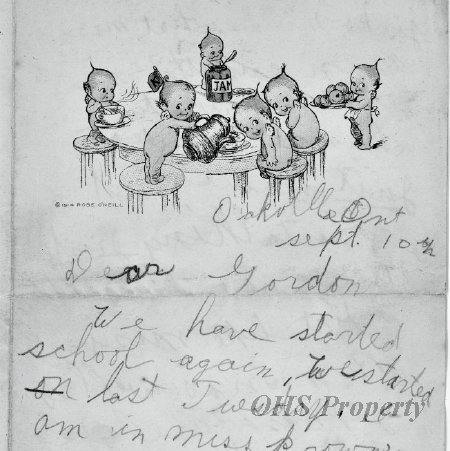 JAM
© 1914 ROSE O'NEILL
Oakville Ont
sept. 10
Dear Gordon
We have started
school again, We started
on last
OHS Property
am in miss Brown